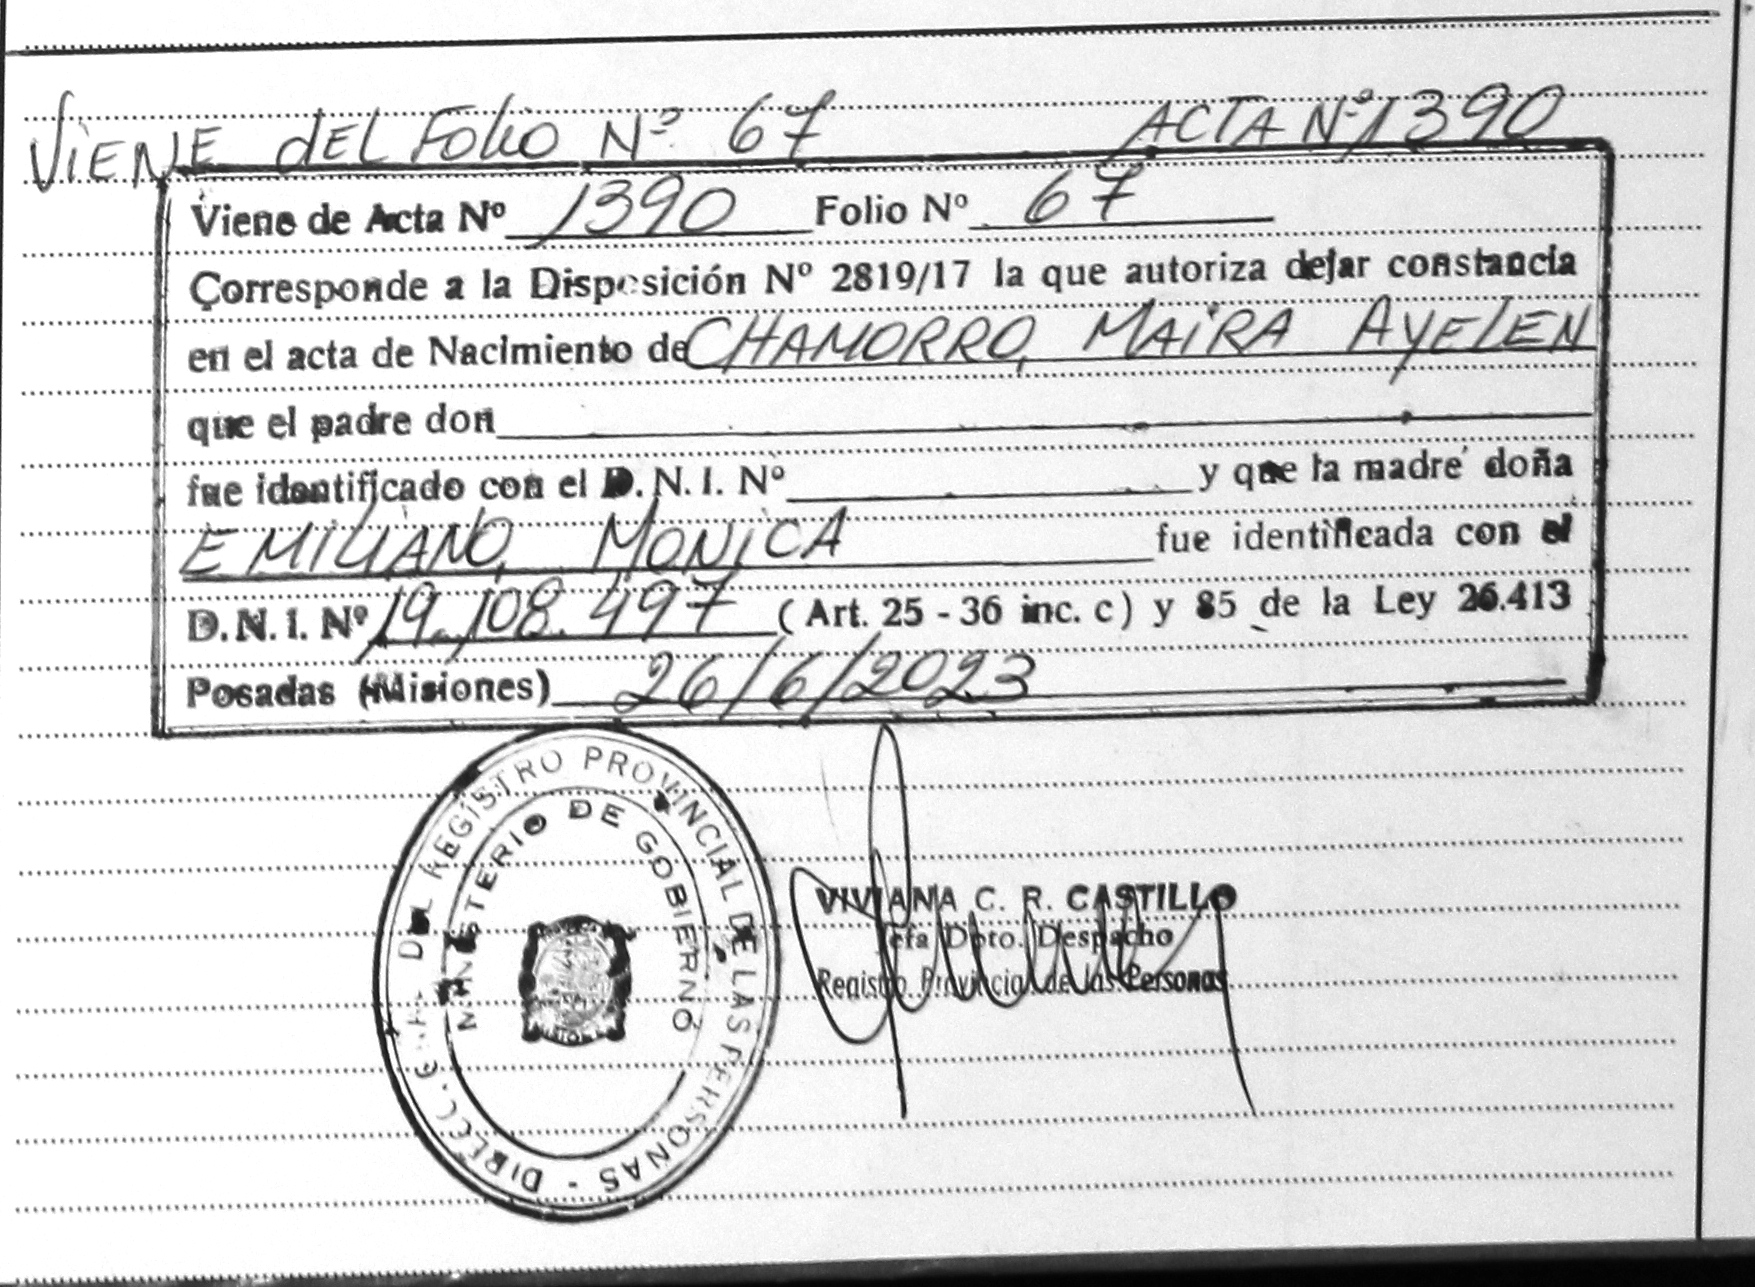 VIENE DEL FOLIO Nº 67 ACTA Nº 1390
Viene de Acta Nº 1390 Folio Nº 67
Corresponde a la Disposición Nº 2819/17 la que autoriza dejar constancia
en el acta de Nacimiento de CHAMORRO, MAIRA AYELEN
que el padre don
fue identificado con el D.N.I. Nº y que la madre doña
EMILIANO, MONICA fue identificada con el
D.N.I. Nº 19.108.497 (Art. 25 - 36 inc. c) y 85 de la Ley 26.413
Posadas (Misiones) 26/6/2023
DIRECC. DEL REGISTRO PROVINCIAL DE LAS PERSONAS -
MINISTERIO DE GOBIERNO
VIVIANA C. R. CASTILLO
Jefa Dpto. Despacho
Registro Provincial de las Personas